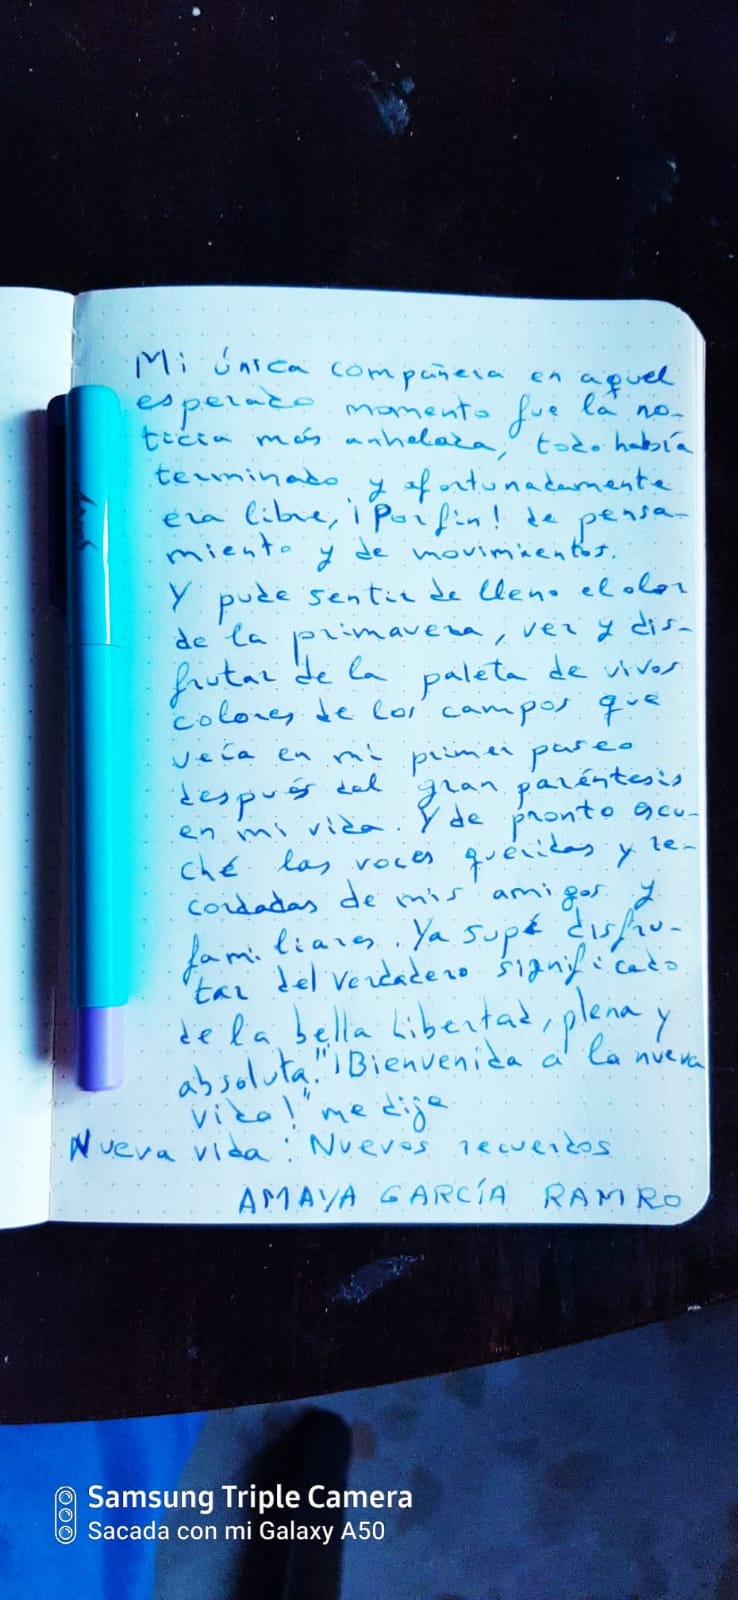 Mi única compañera en aquel
esperado momento fue la no-
ticia más anhelada, todo había
terminado y afortunadamente
era libre, ¡Por fin! de pensa-
miento y de movimientos.
Y pude sentir de lleno el olor
de la primavera, ver y dis-
frutar de la paleta de vivos
colores de los campos que
veía en mi primer paseo
después del gran paréntesis
en mi vida. Y de pronto escu-
ché las voces queridas y re-
cordadas de mis amigos y
familiares. Ya supe disfru-
tar del verdadero significado
de la bella Libertad, plena y
absoluta. "¡Bienvenida a la nueva
vida!" me dije
Nueva vida: Nuevos recuerdos
AMAYA GARCÍA RAMRO
Samsung Triple Camera
Sacada con mi Galaxy A50